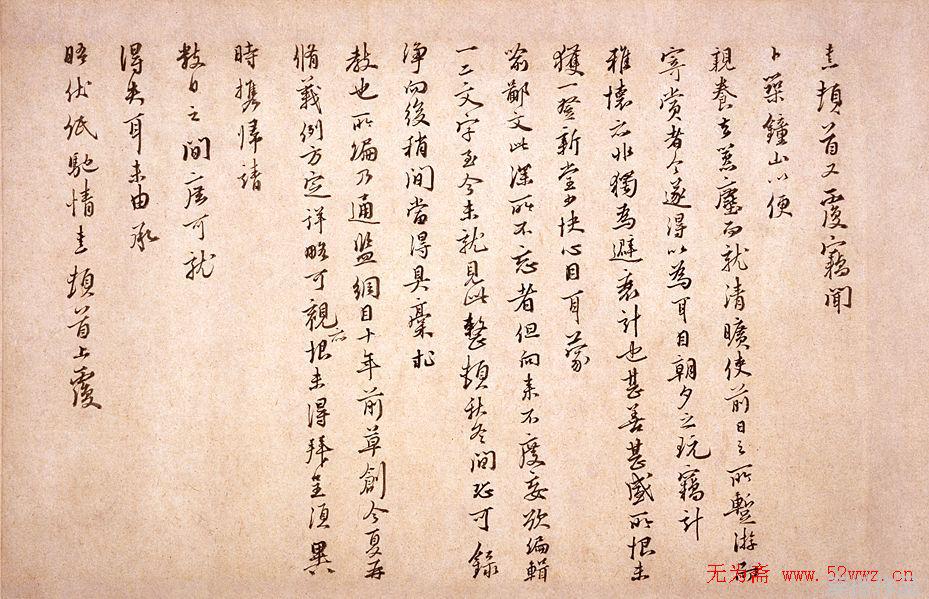 熹頓首又覆竊聞
卜築鐘山以便
親養去囂塵而就清曠使前日之所暫游而
寄賞者今遂得以為耳目朝夕之玩竊計
雅懷亦非獨為避衰計也甚善甚盛所恨未
獲一登新堂少快心目耳蒙
喻鄙文此深所不忘者但向來不度妄欲編輯
一二文字至今未就見此整頓秋冬間恐可錄
淨向後稍間當得具稾求
教也所編乃通鑑綱目十年前草創今夏再
脩義例方定詳略可觀亦恨未得拜呈須異
時攜歸請
數日之間庶可就
得失耳未由承
晤伏紙馳情熹頓首上覆
无为斋 www.52wwz.cn